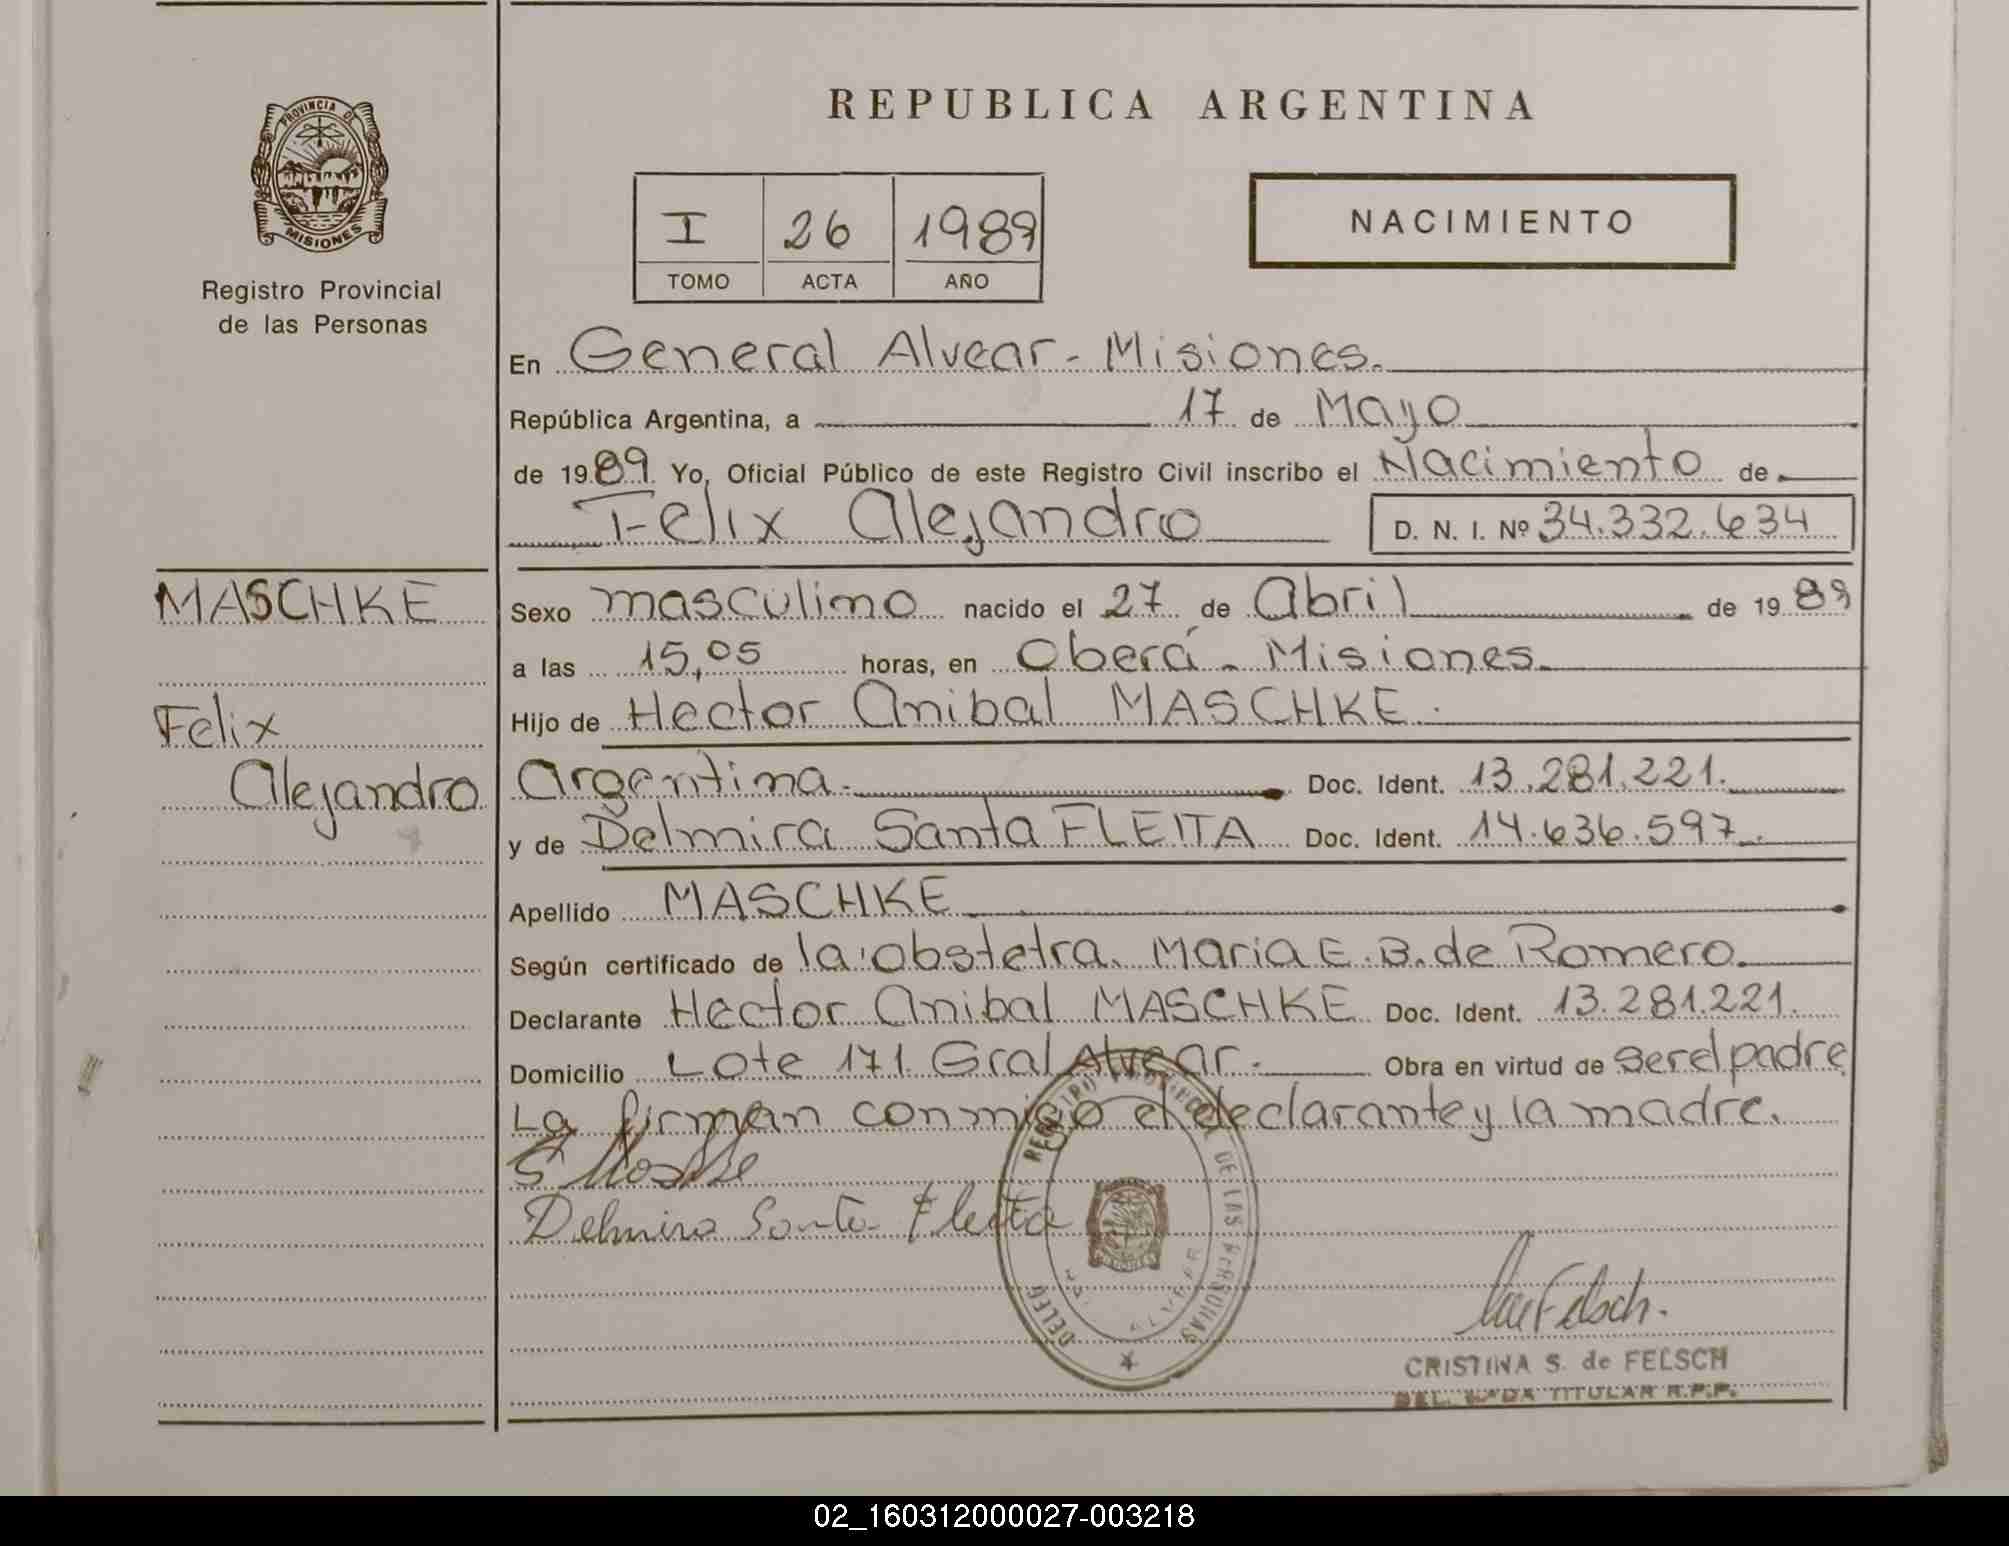 REPUBLICA ARGENTINA
PROVINCIA DE
MISIONES
Registro Provincial
de las Personas
I 26 1989
TOMO ACTA AÑO
NACIMIENTO
En General Alvear - Misiones.
República Argentina, a 17 de Mayo
de 1989. Yo, Oficial Público de este Registro Civil inscribo el Nacimiento de
Felix Alejandro D. N. I. Nº 34.332.634
MASCHKE
Felix
Alejandro
Sexo masculino nacido el 27 de Abril de 1989
a las 15,05 horas, en Oberá - Misiones.
Hijo de Hector Anibal MASCHKE.
Argentina. Doc. Ident. 13.281.221.
y de Delmira Santa FLEITA Doc. Ident. 14.636.597.
Apellido MASCHKE
Según certificado de la obstetra. Maria E. B. de Romero.
Declarante Hector Anibal MASCHKE Doc. Ident. 13.281.221.
Domicilio Lote 171. Gral Alvear. Obra en virtud de ser el padre
La firman conmigo el declarante y la madre.
Delmira Santa Fleita
REGISTRO PROVINCIAL DE LAS PERSONAS
DELEG
ALVEAR
Felsch.
CRISTINA S. de FELSCH
TITULAR R.P.P.
02_160312000027-003218